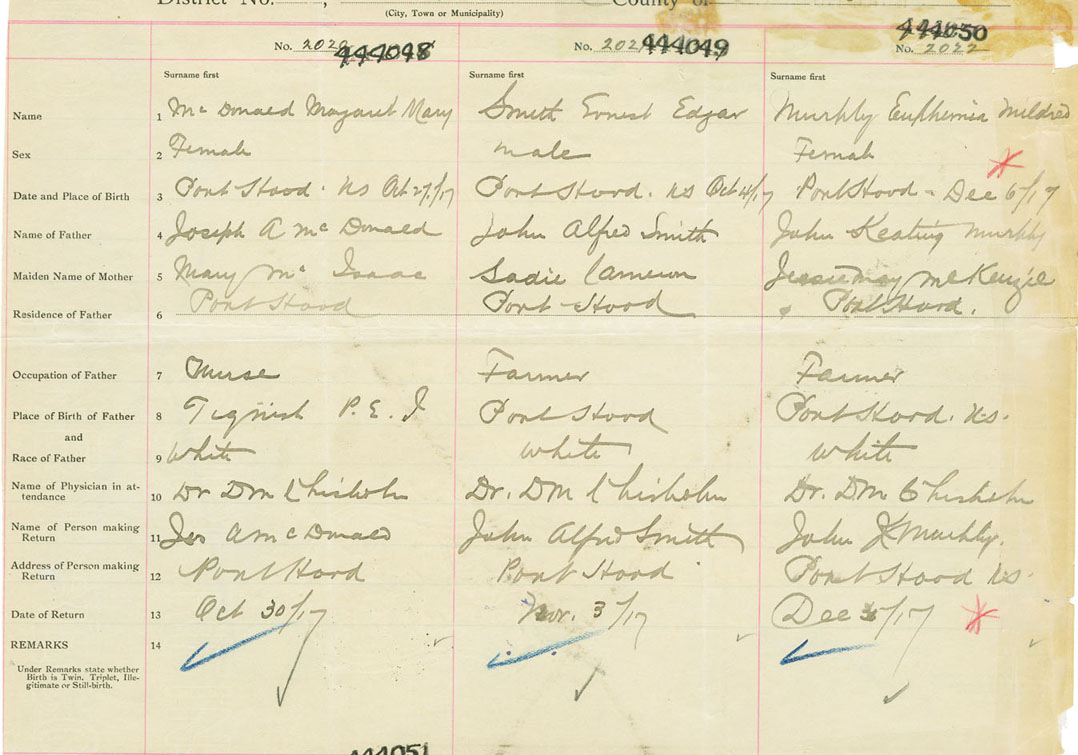 District No. , County of
(City, Town or Municipality)
No. 2020 444048 No. 2021 444049 444050
No. 2022
Surname first Surname first Surname first
Name 1 Mc Donald Margaret Mary Smith Ernest Edgar Murphy Euphemia Mildred
Sex 2 Female male Female
Date and Place of Birth 3 Port Hood. NS Oct 27/17 Port Hood. NS Oct 4/17 Port Hood - Dec 6/17
Name of Father 4 Joseph A Mc Donald John Alfred Smith John Keating Murphy
Maiden Name of Mother 5 Mary Mc Isaac Sadie Cameron Jessie may McKenzie
Residence of Father 6 Port Hood Port Hood Port Hood.
Occupation of Father 7 Farmer Farmer
Place of Birth of Father 8 Tignish P. E. I Port Hood Port Hood. N.S.
and
Race of Father 9 White White White
Name of Physician in at-
tendance 10 Dr DM Chisholm Dr. DM Chisholm Dr. DM Chisholm
Name of Person making
Return 11 Jos A Mc Donald John Alfred Smith John K Murphy.
Address of Person making
Return 12 Port Hood Port Hood Port Hood NS.
Date of Return 13 Oct 30/17 Nov. 3/17 Dec /17
REMARKS 14
Under Remarks state whether
Birth is Twin, Triplet, Ille-
gitimate or Still-birth.
444051